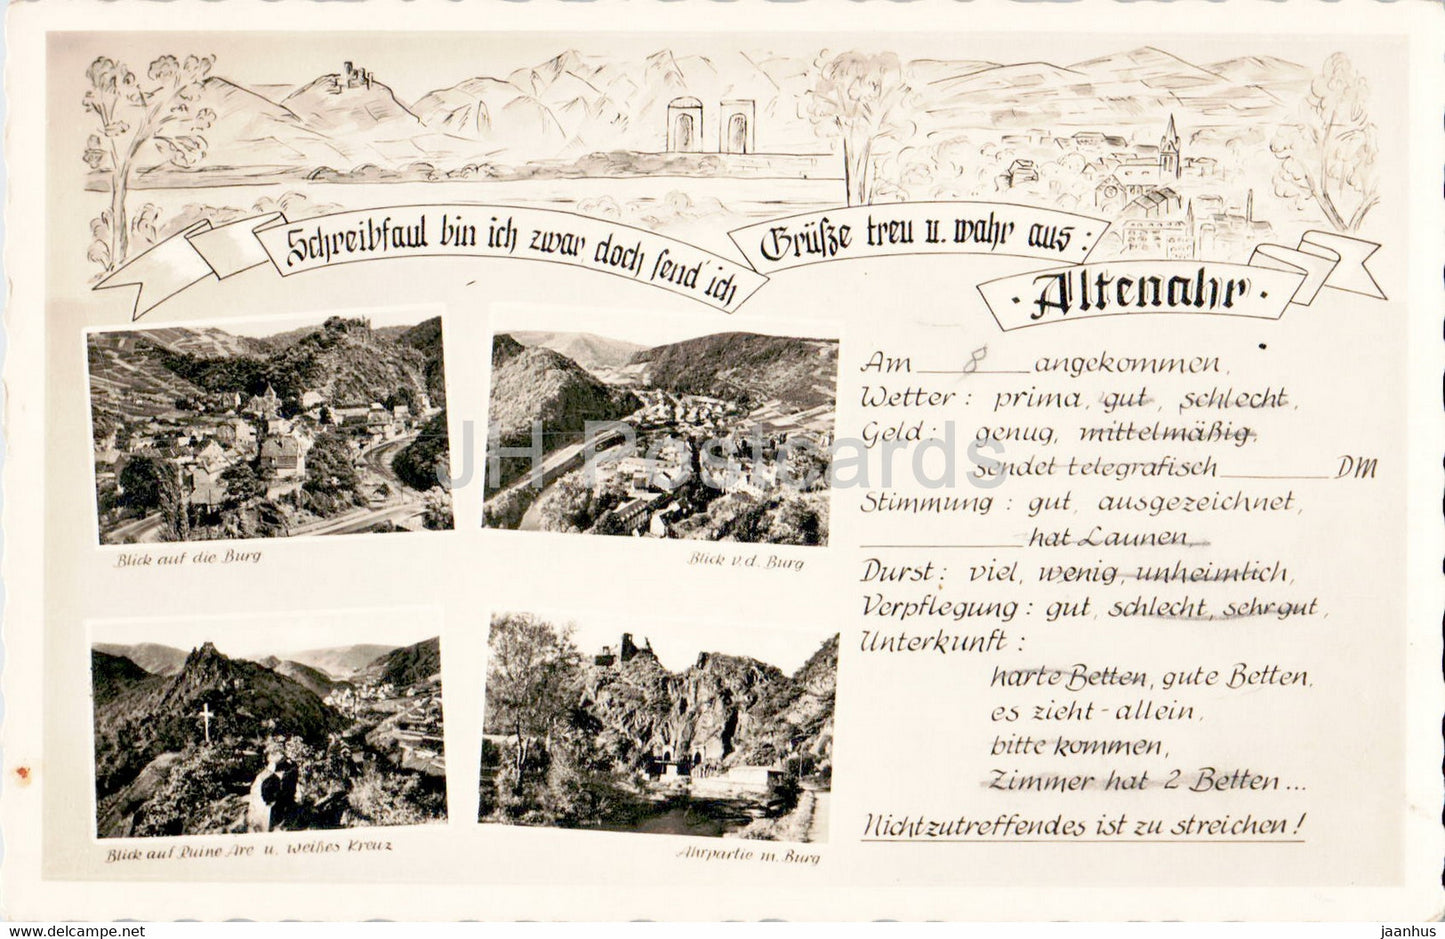 Schreibfaul bin ich zwar doch send' ich
Grüße treu u. wahr aus:
· Altenahr ·
Blick auf die Burg
Blick v. d. Burg
Blick auf Ruine Are u. weißes Kreuz
Ahrpartie m. Burg
Am 8 angekommen,
Wetter: prima, gut, schlecht,
Geld: genug, mittelmäßig,
sendet telegrafisch ______ DM
Stimmung: gut, ausgezeichnet,
______ hat Launen,
Durst: viel, wenig, unheimlich,
Verpflegung: gut, schlecht, sehr gut,
Unterkunft:
harte Betten, gute Betten,
es zieht - allein,
bitte kommen,
Zimmer hat 2 Betten...
Nichtzutreffendes ist zu streichen!
JH Postcards
www.delcampe.net
jaanhus